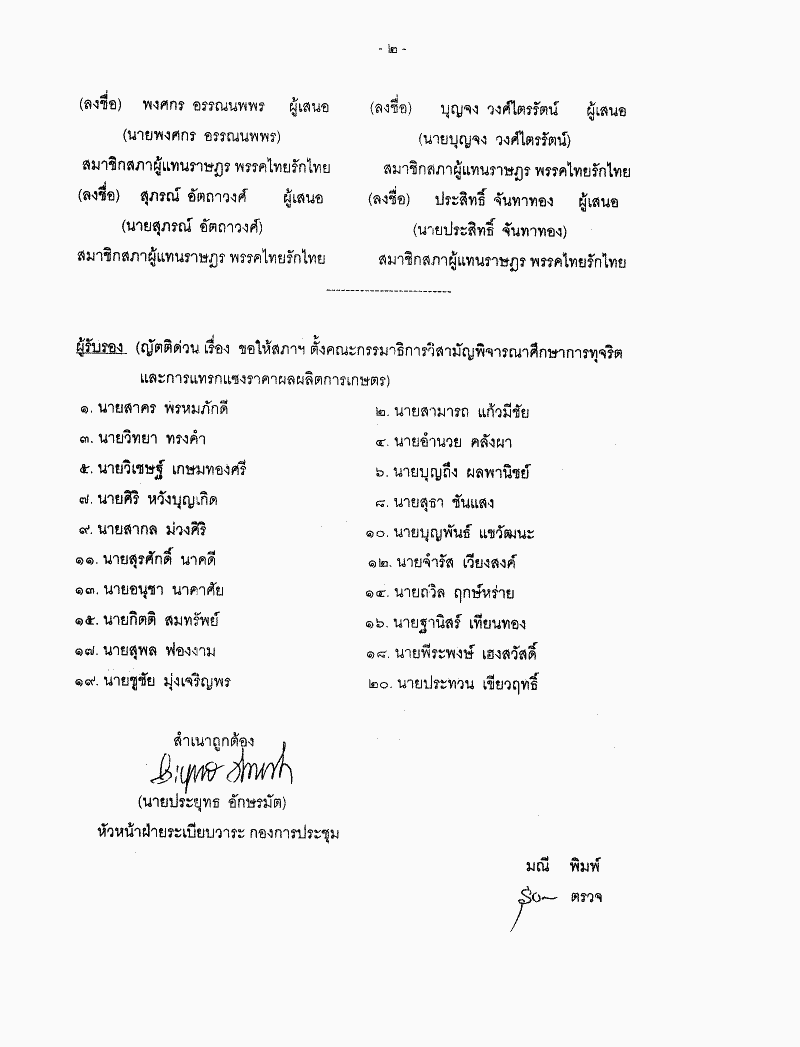 - ๒ -
(ลงชื่อ) พงศกร อรรณนพพร ผู้เสนอ (ลงชื่อ) บุญจง วงศ์ไตรรัตน์ ผู้เสนอ
(นายพงศกร อรรณนพพร) (นายบุญจง วงศ์ไตรรัตน์)
สมาชิกสภาผู้แทนราษฎร พรรคไทยรักไทย สมาชิกสภาผู้แทนราษฎร พรรคไทยรักไทย
(ลงชื่อ) สุภรณ์ อัตถาวงศ์ ผู้เสนอ (ลงชื่อ) ประสิทธิ์ จันทาทอง ผู้เสนอ
(นายสุภรณ์ อัตถาวงศ์) (นายประสิทธิ์ จันทาทอง)
สมาชิกสภาผู้แทนราษฎร พรรคไทยรักไทย สมาชิกสภาผู้แทนราษฎร พรรคไทยรักไทย
--------------------------
ผู้รับรอง (ญัตติด่วน เรื่อง ขอให้สภาฯ ตั้งคณะกรรมาธิการวิสามัญพิจารณาศึกษาการทุจริต
และการแทรกแซงราคาผลผลิตการเกษตร)
๑. นายสาคร พรหมภักดี ๒. นายสามารถ แก้วมีชัย
๓. นายวิทยา ทรงคำ ๔. นายอำนวย คลังผา
๕. นายวิเชษฐ์ เกษมทองศรี ๖. นายบุญถึง ผลพานิชย์
๗. นายศิริ หวังบุญเกิด ๘. นายสุธา ชันแสง
๙. นายสากล ม่วงศิริ ๑๐. นายบุญพันธ์ แขวัฒนะ
๑๑. นายสุรศักดิ์ นาคดี ๑๒. นายจำรัส เวียงสงค์
๑๓. นายอนุชา นาคาศัย ๑๔. นายถวิล ฤกษ์หร่าย
๑๕. นายกิตติ สมทรัพย์ ๑๖. นายฐานิสร์ เทียนทอง
๑๗. นายสุพล ฟองงาม ๑๘. นายพีระพงษ์ เฮงสวัสดิ์
๑๙. นายชูชัย มุ่งเจริญพร ๒๐. นายประทวน เขียวฤทธิ์
สำเนาถูกต้อง
(นายประยุทธ อักษรมัต)
หัวหน้าฝ่ายระเบียบวาระ กองการประชุม
มณี พิมพ์
ตรวจ